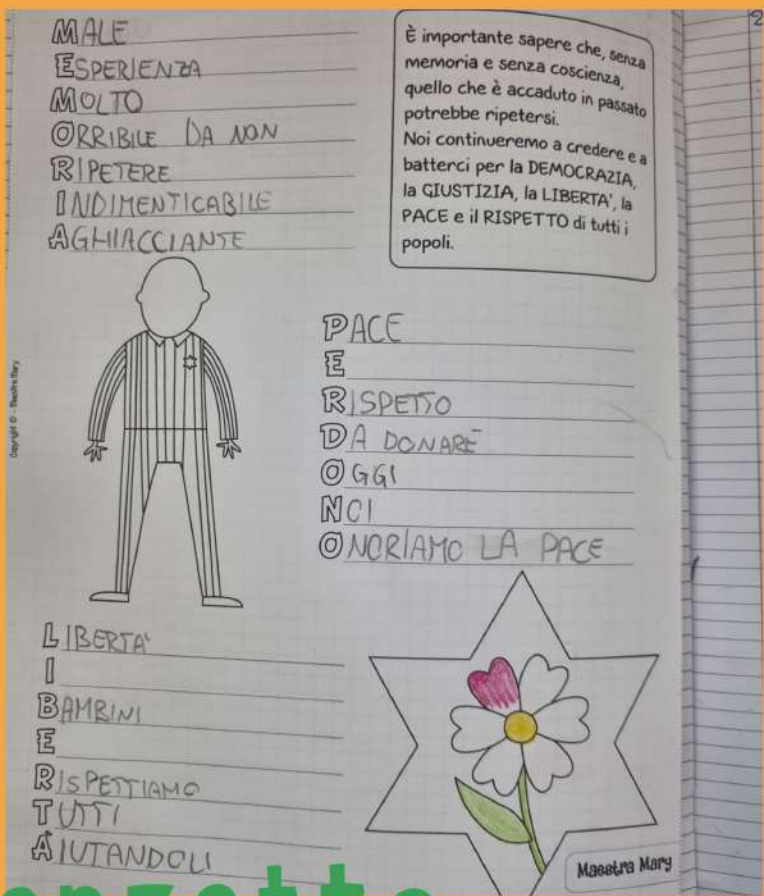 MALE
ESPERIENZA
MOLTO
ORRIBILE DA NON
RIPETERE
INDIMENTICABILE
AGHIACCIANTE
È importante sapere che, senza
memoria e senza coscienza,
quello che è accaduto in passato
potrebbe ripetersi.
Noi continueremo a credere e a
batterci per la DEMOCRAZIA,
la GIUSTIZIA, la LIBERTA', la
PACE e il RISPETTO di tutti i
popoli.
2
Copyright © - Maestra Mary
PACE
E
RISPETTO
DA DONARE
OGGI
NOI
ONORIAMO LA PACE
LIBERTA'
I
BAMBINI
E
RISPETTIAMO
TUTTI
AIUTANDOLI
Maestra Mary